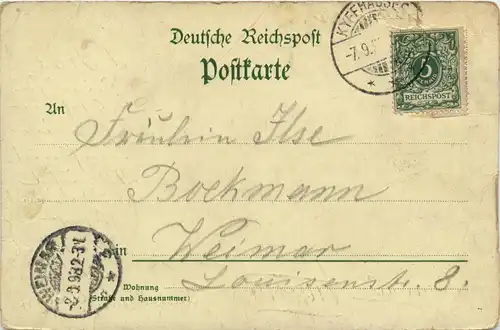 KYFFHÄUSER
-7.9.
Deutsche Reichspost
Postkarte
5
REICHSPOST
An
Fräulein Ilse
Bockmann
in Weimar
Wohnung Louisenstr. 8.
(Straße und Hausnummer)
WEIMAR